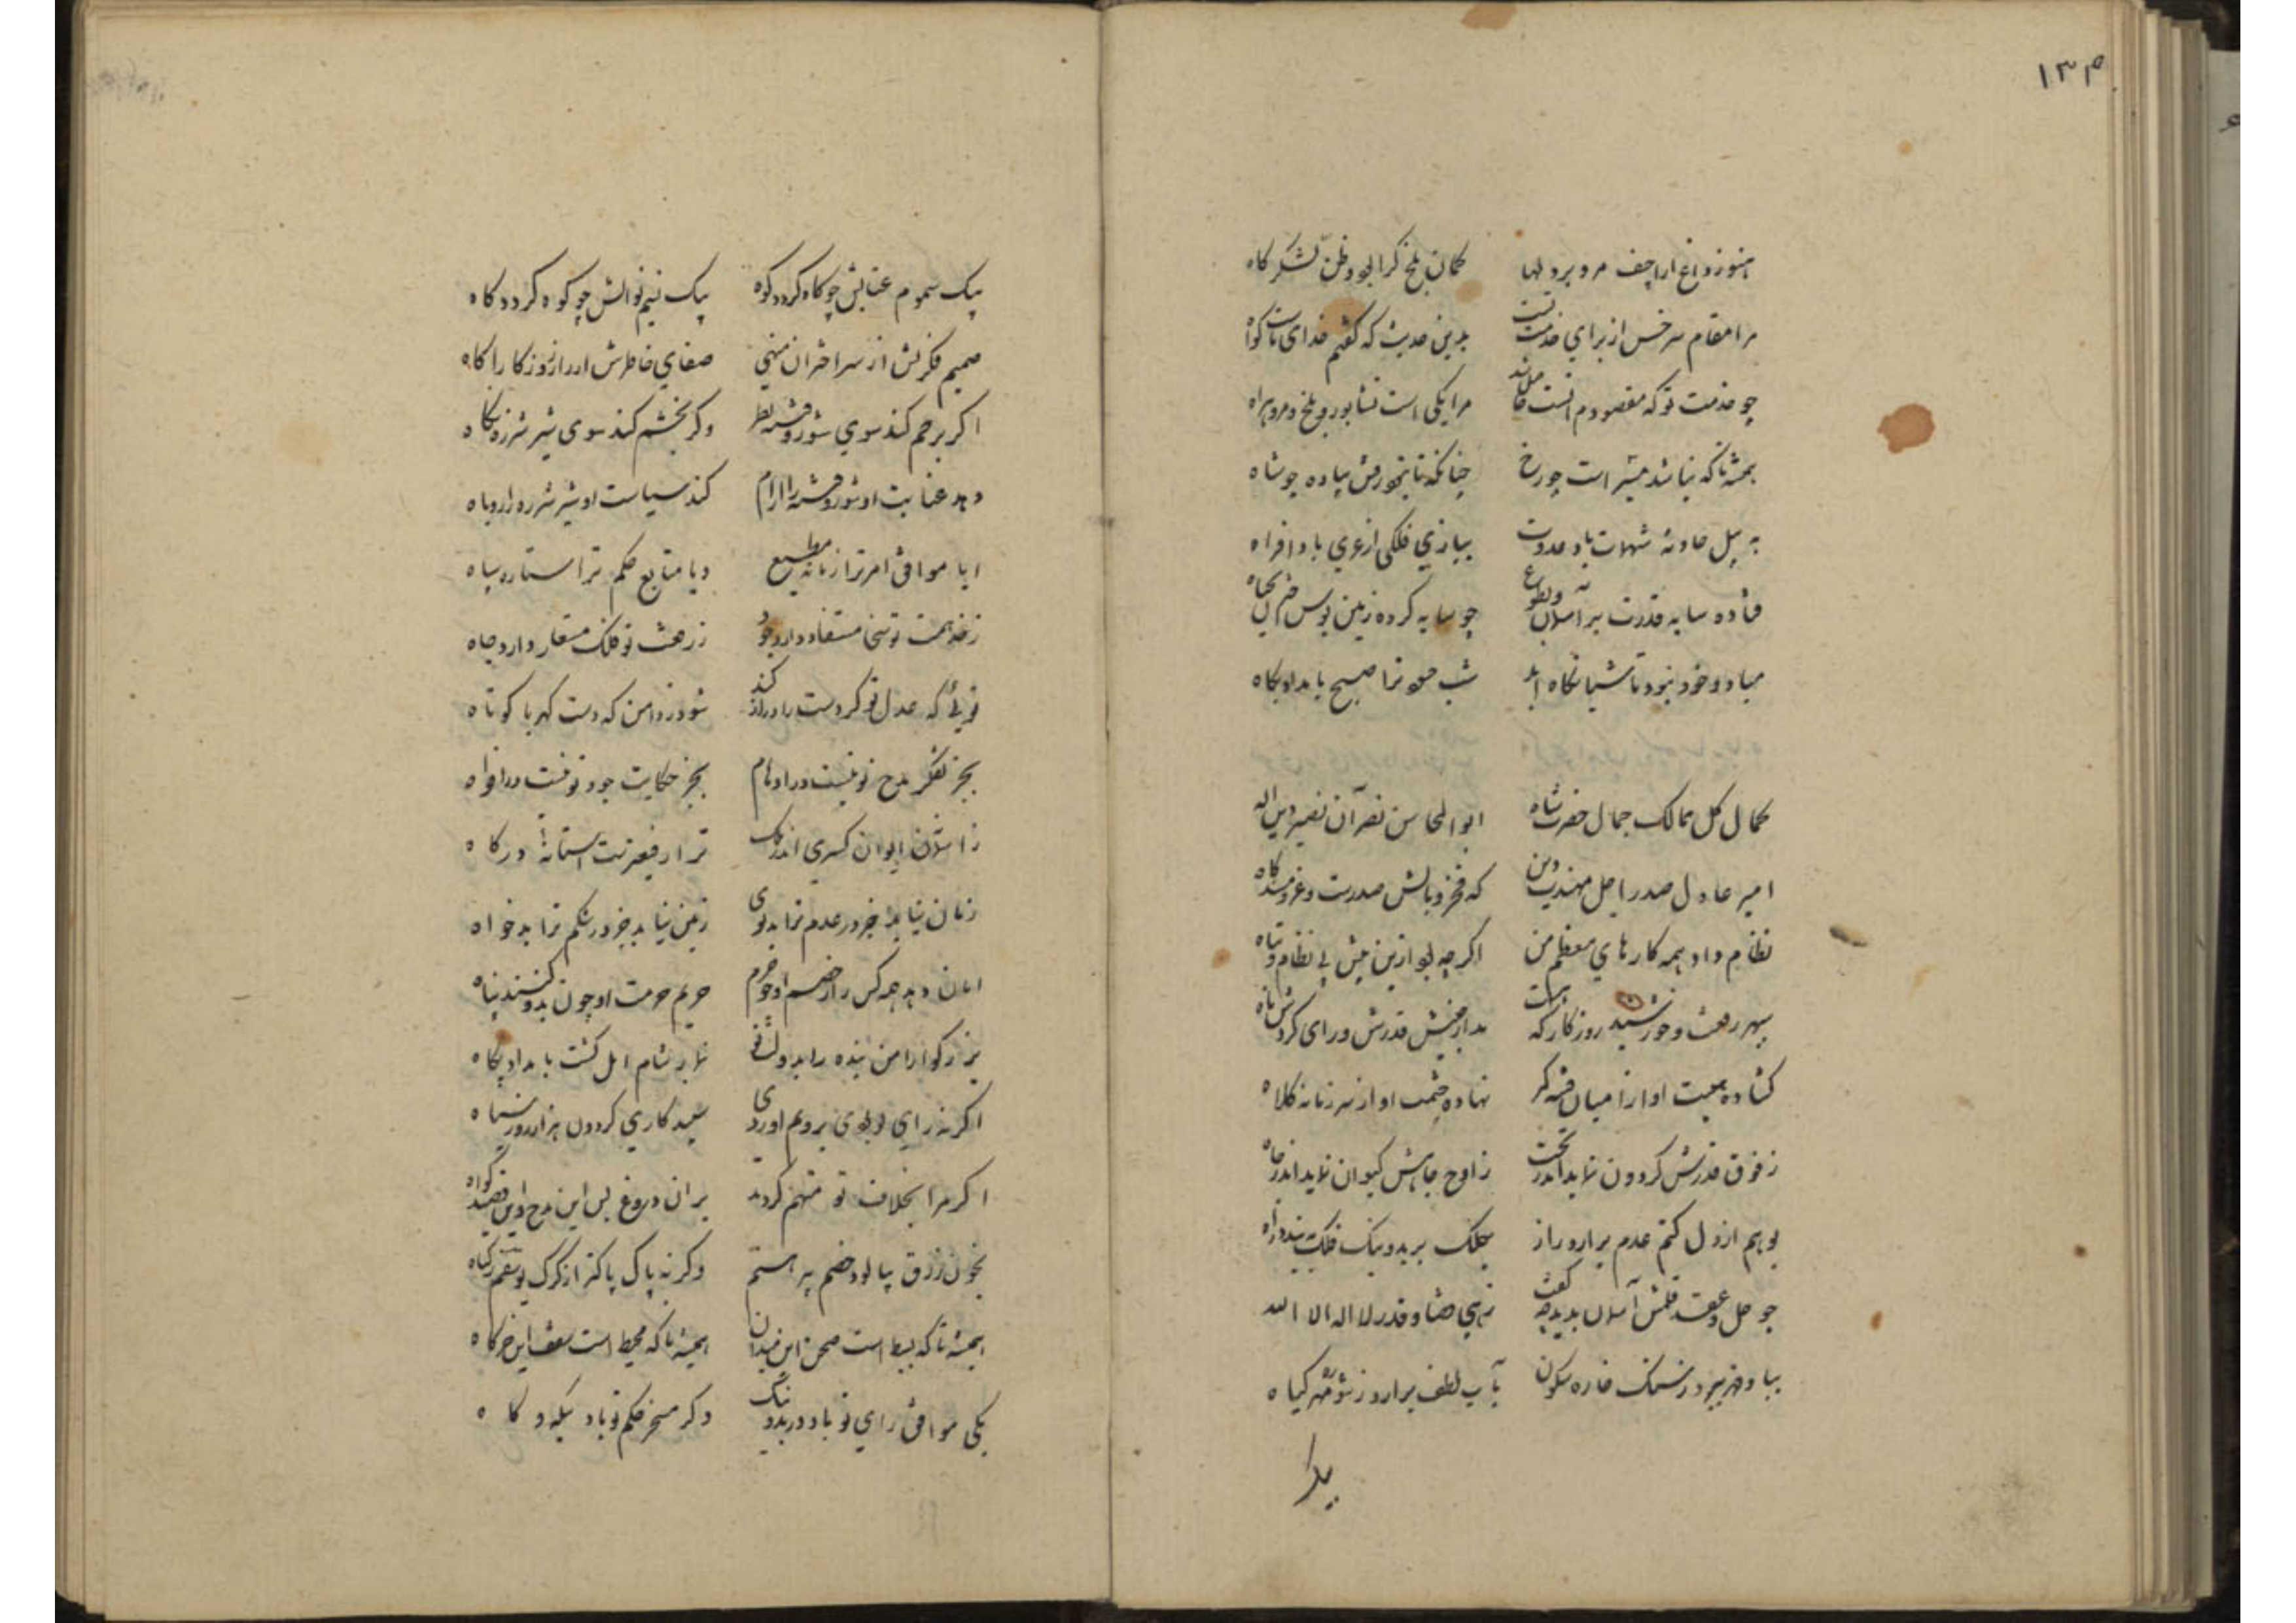 ۱۳۴
هنوز داغ اراجیف مرو بر دلها کمان بلخ کرا بود و ظن لشکرگاه
مرا مقام سرخس از برای خدمت تست بدین حدیث که گفتم خدای تست گواه
چو خدمت تو که مقصودم انست حاصل شد مرا یکی است نشابور و بلخ و مرو و هراه
همیشه تا که نباشد مسیر است چو رخ چنانکه تا نبود فرش پیاده چو شاه
به پیل حادثه شهمات باد عدوت ببازی فلکی از عری باد افراه
فتاده سایه قدرت بر آسمان و بطوع چو سایه کرده زمین بوس
مباد و خود نبود تا شبانگاه ابد شب عدو ترا صبح بامداد پگاه
کمال کل ممالک جمال حضرت شاه ابوالمحاسن نصر آن نصیر دین اله
امیر عادل صدر اجل مهذب دین که فخر بالش صدرست و عز مسند گاه
نظام داد همه کارهای معظم من اگرچه بود ازین پیش بی نظام و تباه
سپهر رفعت و خورشید روزگار که هست مدار جنبش قدرش ورای گردش ماه
گشاده هیبت او از میان فتنه کمر نهاده حشمت او از سر زمانه کلاه
ز فوق قدرش گردون نماید اندر تحت ز اوج جاهش کیوان نماید اندر چاه
بوهم از دل کتم عدم برارد راز بکلک بر بد و نیک فلک به بندد راه
چو حل و عقد قلمش آسمان بدید چه گفت زهی قضا و قدر لا اله الا الله
بباد قهر ببرد ز سنگ خاره سکون بآب لطف برارد ز شوره مهر گیاه
بیک
بیک سموم عتابش چو کاه گردد کوه بیک نسیم نوالش چو کوه گردد کاه
صمیم فکرتش از سر اختران منهی صفای خاطرش از راز روزگار آگاه
اگر برحم کند سوی شور و فتنه نظر وگر بخشم کند سوی شیر شرزه نگاه
دهد عنایت او شور و فتنه را آرام کند سیاست او شیر شرزه را روباه
ایا موافق امر ترا زمانه مطیع ویا متابع حکم ترا ستاره سپاه
ز همت تو سخا مستفاد دارد جود ز رفعت تو فلک مستعار دارد جاه
توئی که عدل تو گر دست را دراز کند شود ز دامن که دست کهربا کوتاه
بجز تفکر مدح تو نیست در اوهام بجز حکایت جود تو نیست در افواه
ز آستان ایوان کسری اندر ملک ترا رفیعتر است آستانهٔ درگاه
زمان نیابد جز در عدم ترا بدگوی زمین نیابد جز در شکم ترا بدخواه
امان دهد همه کس را ز خصم او حرم حریم حرمت او چون بدو کنند پناه
بزرگوارا من بنده را بدولت تو نماز شام امل گشت بامداد پگاه
اگر نه رای تو بودی برویم اوردی سپیدکاری گردون هزار روز سیاه
اگر مرا بخلاف تو متهم کردند بران دروغ بس این مدح و این قصیده گواه
بخون زرق بیالود خصم پیرهنم وگرنه پاک پاکتر از گرگ یوسفم ز گناه
همیشه تا که بسیط است صحن این میدان همیشه تا که محیط است سقف این خرگاه
یکی موافق رای تو باد در بد و نیک دگر مسخر حکم تو باد بیگه و گاه